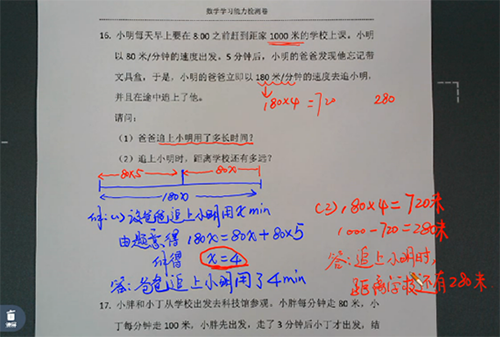 数学学习能力检测卷
16、小明每天早上要在 8:00 之前赶到距家 1000 米的学校上课，小明
以 80 米/分钟的速度出发，5 分钟后，小明的爸爸发现他忘记带
文具盒，于是，小明的爸爸立即以 180 米/分钟的速度去追小明，
并且在途中追上了他。
180×4=720 280
请问：
（1）爸爸追上小明用了多长时间？
（2）追上小明时，距离学校还有多远？
80×5 80x
180x
解:(1)设爸爸追上小明用x min
由题意,得 180x=80x+80×5
解得 x=4
答:爸爸追上小明用了4min
(2)180×4=720米
1000-720=280米
答:追上小明时,
距离学校还有280米
17、小胖和小丁从学校出发去科技馆参观，小胖每分钟走 80 米，小
丁每分钟走 100 米，小胖先出发，走了 3 分钟后小丁才出发，结